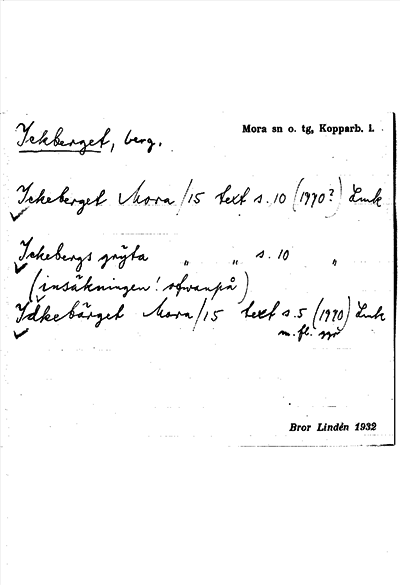 Ickberget, berg.
Mora sn o. tg, Kopparb. l.
Ickeberget Mora/15 text s. 10 (1770?) Lmk
Ickebergs gryta " " s. 10 "
(insäkningen! ofvanpå)
Idkebärget Mora/15 text s. 5 (1770) Lmk
m. fl. st.
Bror Lindén 1932